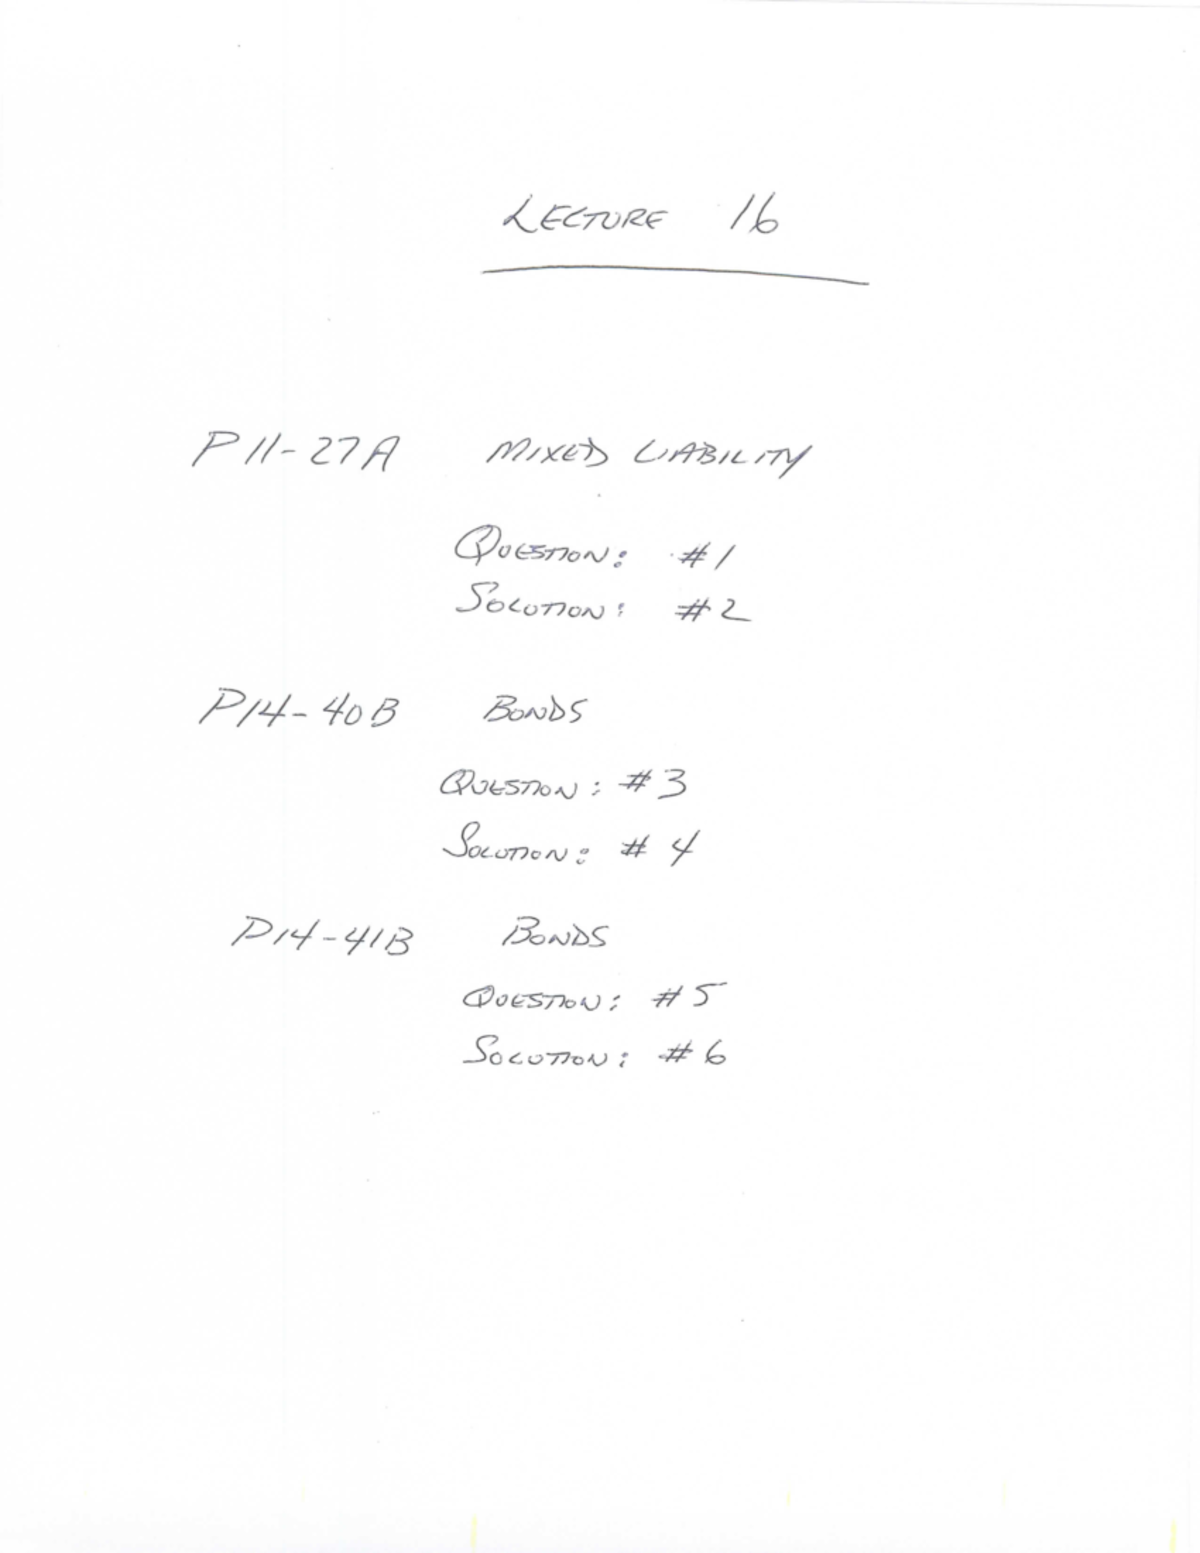 LECTURE 16
P11-27A MIXED LIABILITY
QUESTION: #1
SOLUTION: #2
P14-40B BONDS
QUESTION: #3
SOLUTION: #4
P14-41B BONDS
QUESTION: #5
SOLUTION: #6